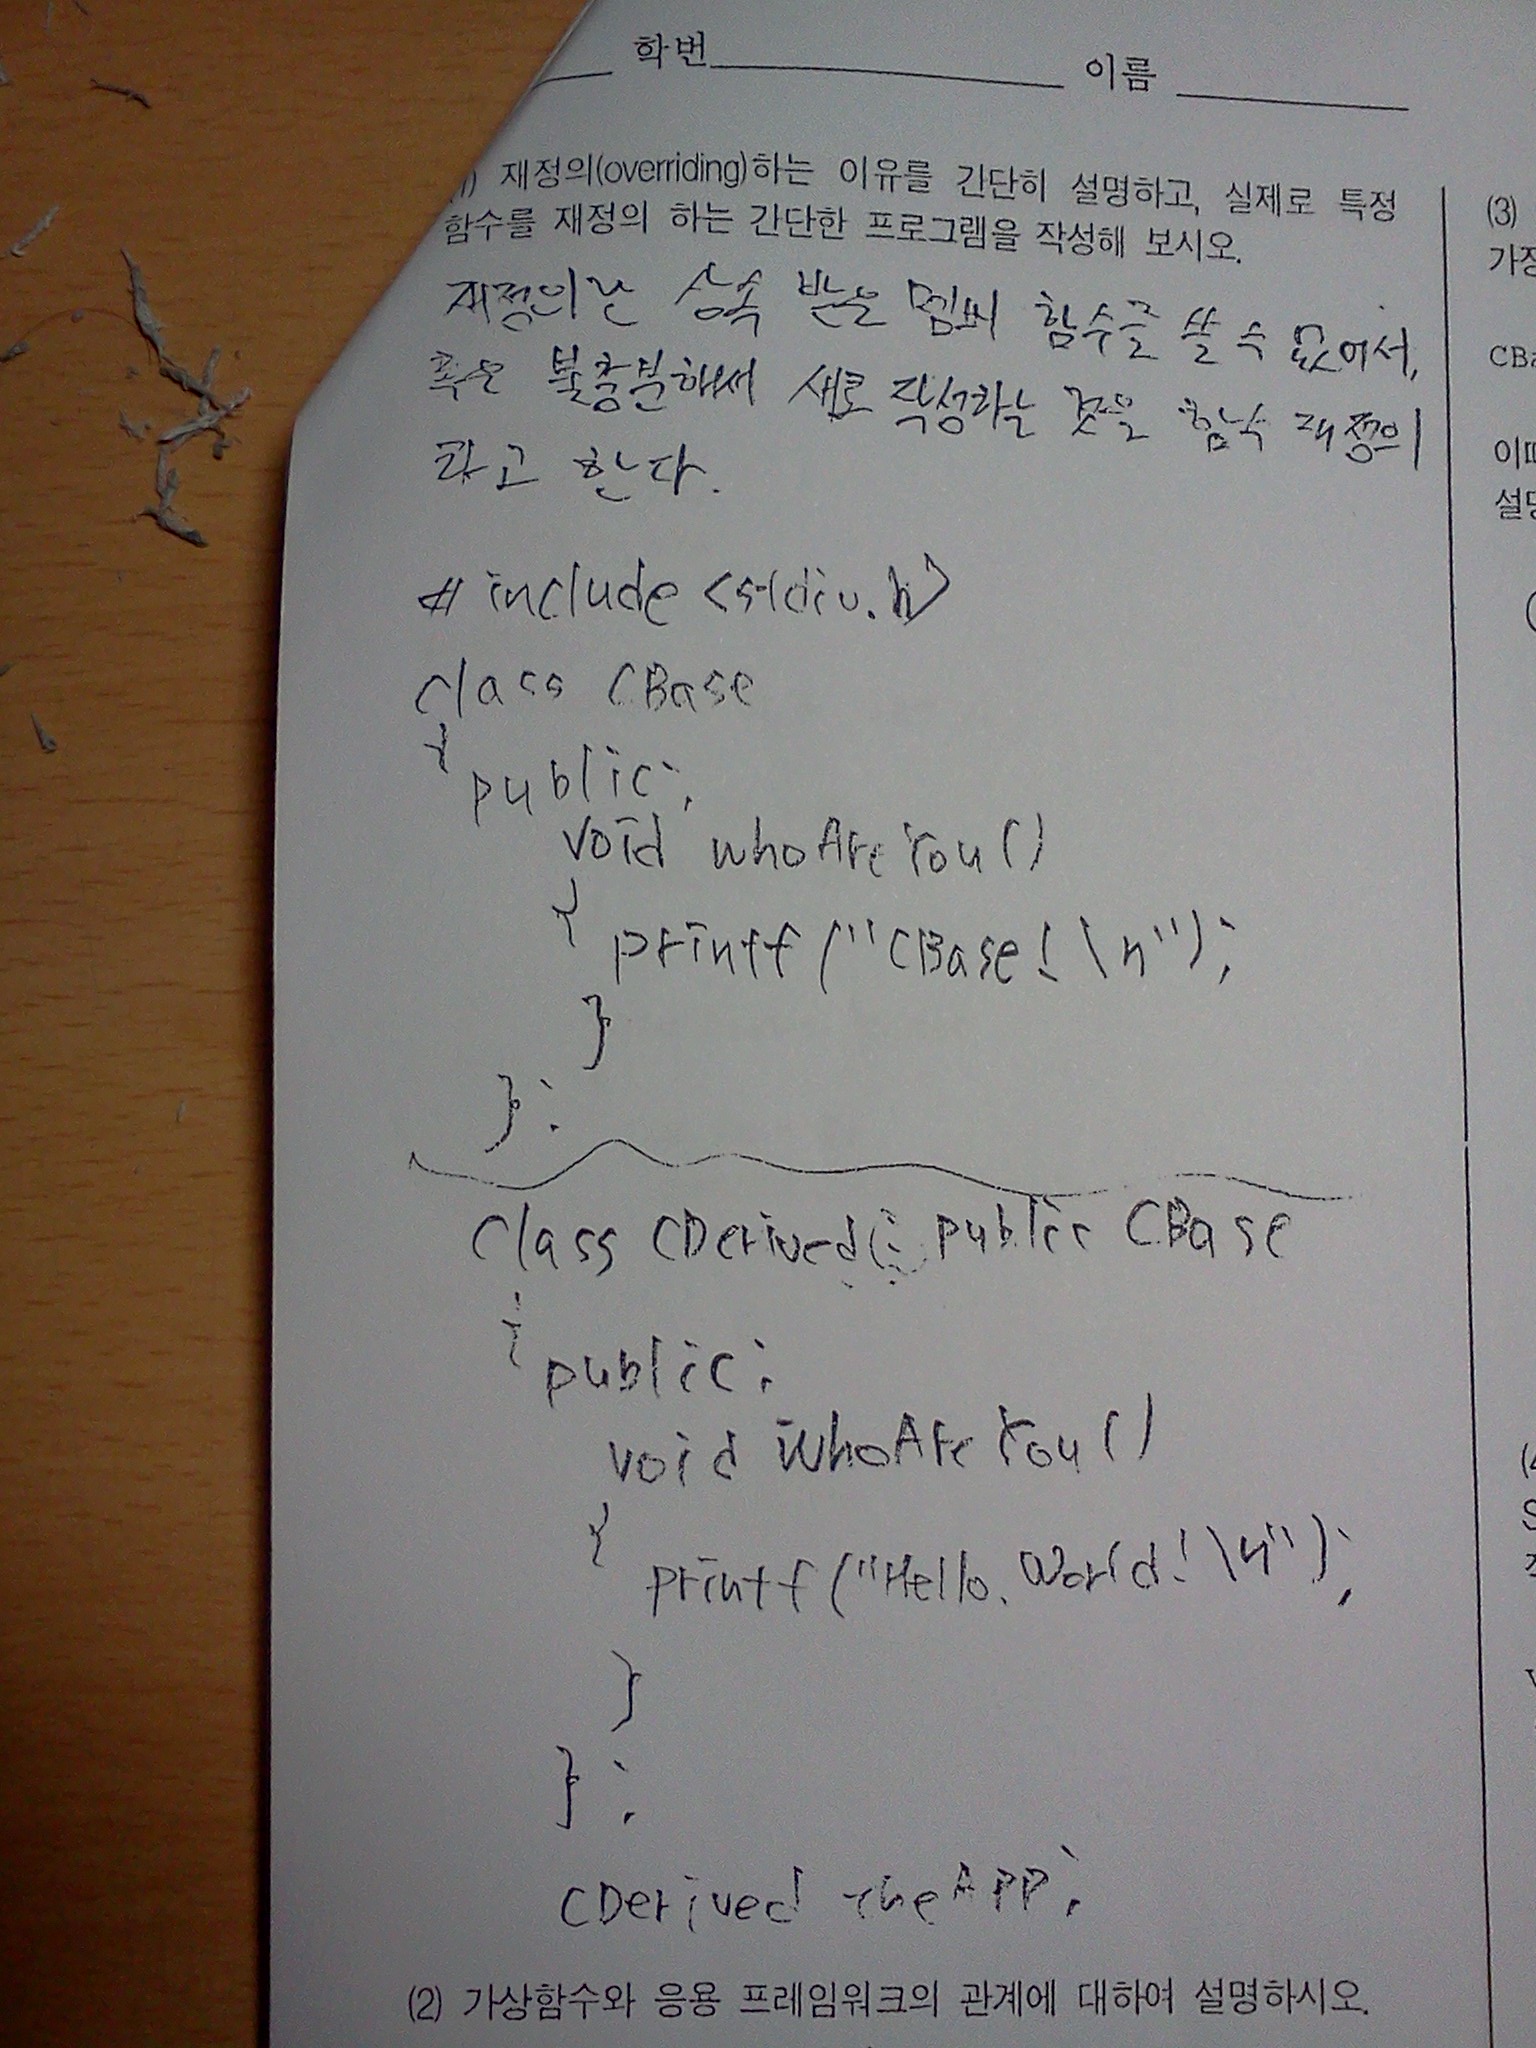 학번 이름
(1) 재정의(overriding)하는 이유를 간단히 설명하고, 실제로 특정
함수를 재정의 하는 간단한 프로그램을 작성해 보시오.
재정의란 상속 받은 멤버 함수를 쓸 수 없어서,
혹은 불충분해서 새로 작성하는 것을 함수 재정의
라고 한다.
#include <stdio.h>
class CBase
{ public:
void whoAreYou()
{ printf("CBase!\n");
}
};
class CDerived : public CBase
{ public:
void WhoAreYou()
{ printf("Hello. World!\n");
}
};
CDerived theAPP;
(2) 가상함수와 응용 프레임워크의 관계에 대하여 설명하시오.
(3)